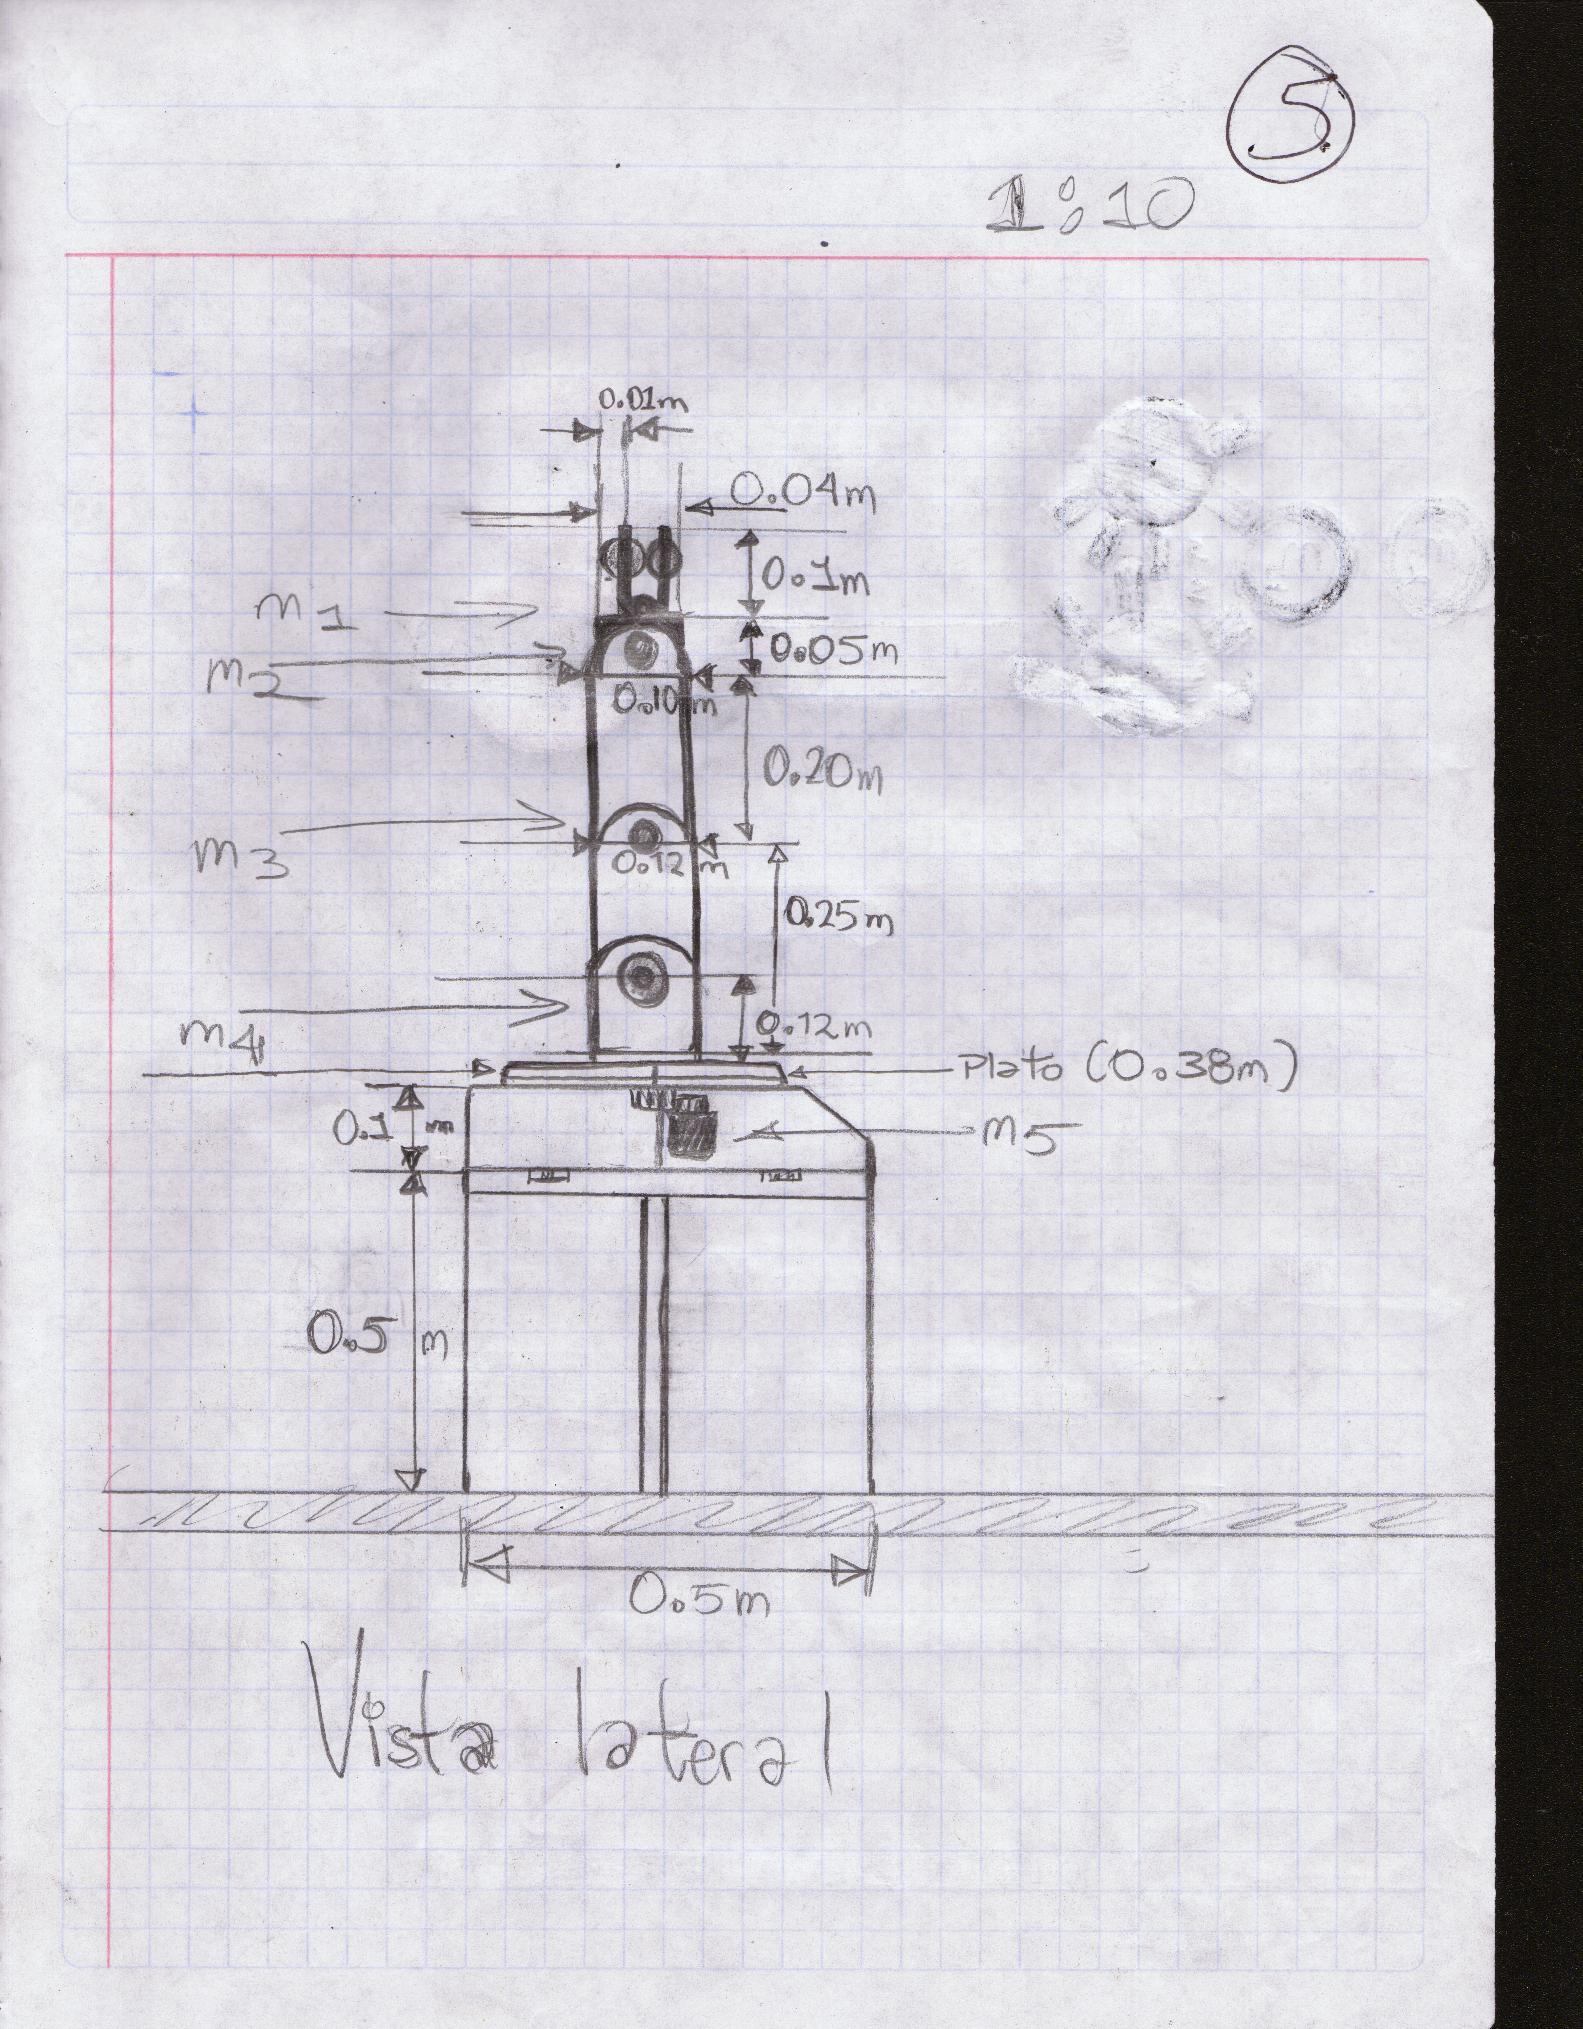 5
1:10
0.01m
0.04m
0.1m
m1
0.05m
m2
0.10 m
0.20m
m3
0.12 m
0.25m
m4
0.12m
Plato (0.38m)
0.1 m
m5
0.5 m
0.5m
Vista lateral